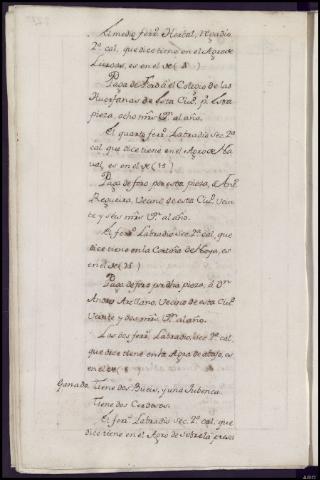 El medio ferr. Hortal, regadio
2ª cal. que dice tiene en el Agro de
es en el
Paga de foro al Colegio de las
Huerfanas de esta Ciud. pr. esta
pieza, ocho mrs. Vn. al año.
El quarto ferr. Labradio sec. 2ª
cal. que dice tiene en el Agro de
es en el (15)
Paga de foro por esta pieza, à
Regueira, Vecino de esta Ciud. vein
te y seis mrs. Vn. al año.
El ferr. Labradio sec. 2ª cal. que
dice tiene en la Cortiña de Hoyo, es
en el
Paga de foro por dha pieza, à Dn.
Andro Arellano, Vecino de esta Ciud.
veinte y dos mrs. Vn. al año.
Los dos ferr. Labradio, sec. 2ª cal.
que dice tiene en la Agra de abajo, es
en el
Ganado. Tiene dos Bueis, y una Jubenca.
Tiene dos Cerdosos.
El ferr. Labradio sec. 2ª cal. que
dice tiene en el Agro de sobre la